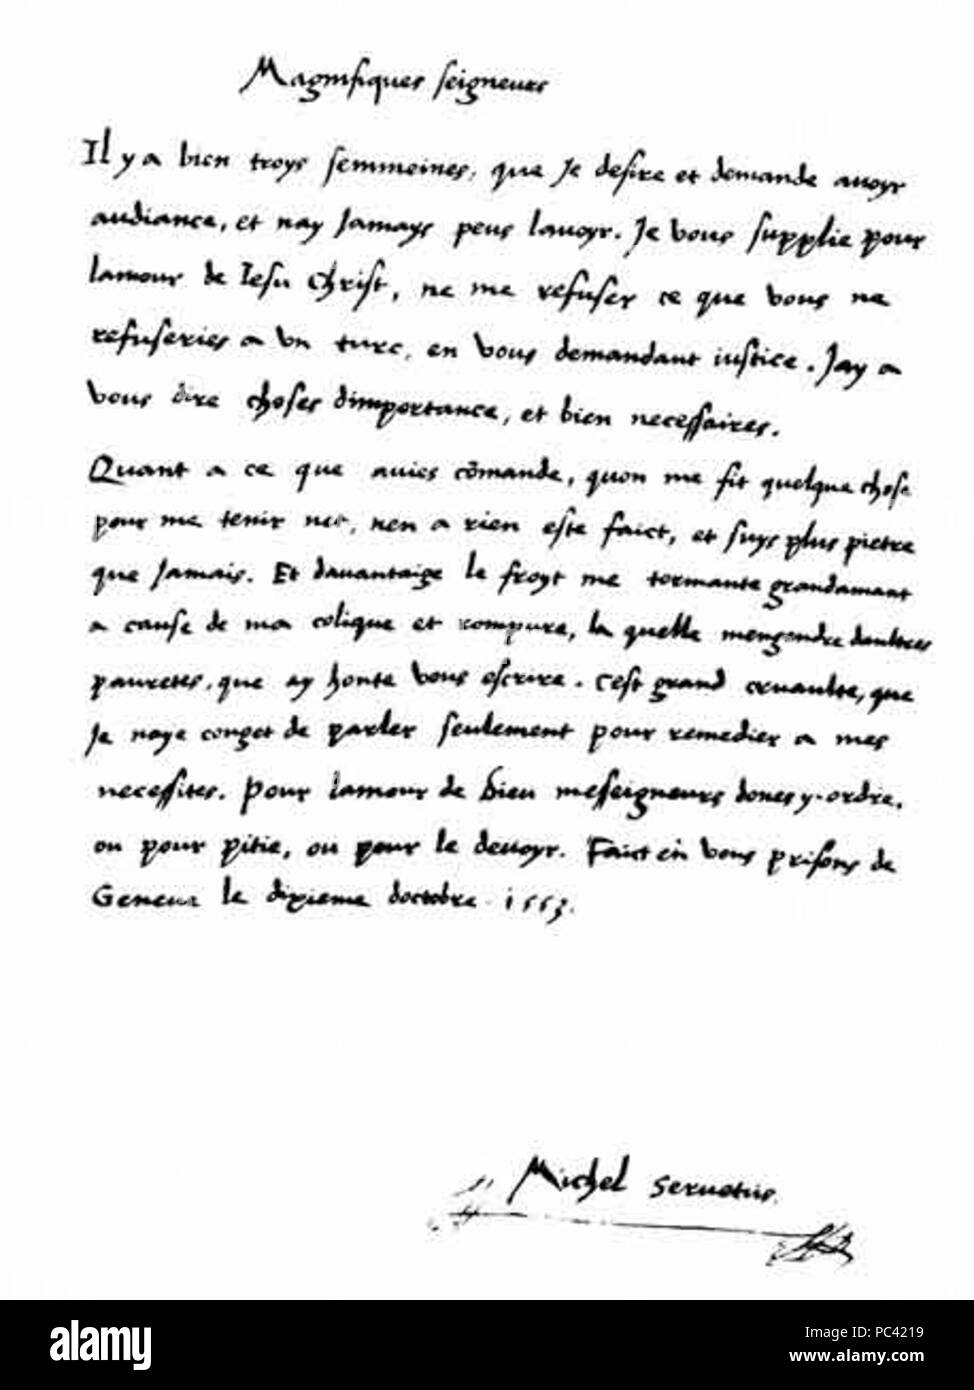 Magnifiques seigneurs
Il y a bien troys semmeines, que Je desire et demande avoyr
audiance, et nay Jamays peus lavoyr. Je vous supplie pour
lamour de Iesu Christ, ne me refuser ce que vous ne
refuseries a vn turc, en vous demandant iustice. Jay a
vous dire choses dimportance, et bien necessaires.
Quant a ce que auies cōmande, quon me fit quelque chose
pour me tenir net, nen a rien este faict, et suys plus pietre
que Jamais. Et dauantaige le froyt me tormante grandamant
a cause de ma colique et rompure, la quelle mengendre daultres
pauretes, que ay honte vous escrire. Cest grand cruaulte, que
Je naye conget de parler seulement pour remedier a mes
necessites. Pour lamour de Dieu messeigneurs dones y ordre,
ou pour pitie, ou pour le devoyr. Faict en vous prisons de
Geneve le dixieme doctobre 1553.
Michel Servetus.
alamy
Image ID: PC4219
www.alamy.com